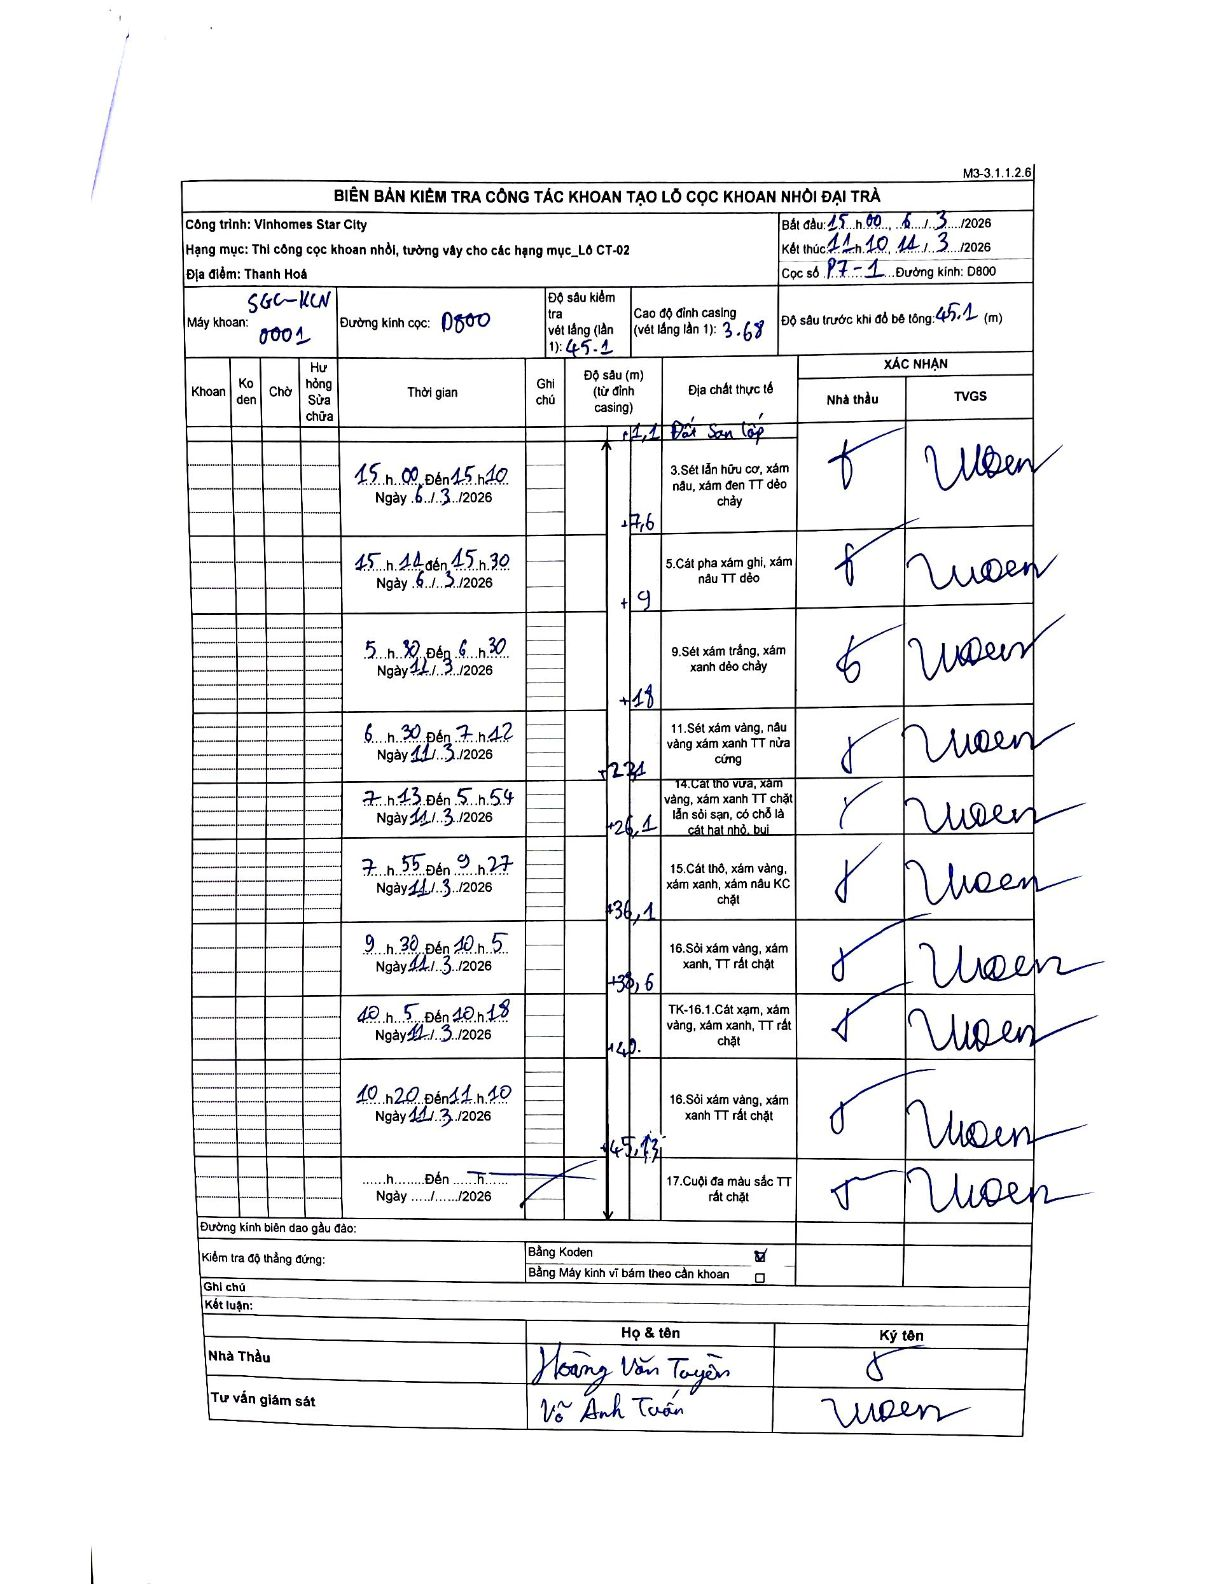 M3-3.1.1.2.6
BIÊN BẢN KIỂM TRA CÔNG TÁC KHOAN TẠO LỖ CỌC KHOAN NHỒI ĐẠI TRÀ
Công trình: Vinhomes Star City
Bắt đầu: 15 h 00, 6 / 3 /2026
Hạng mục: Thi công cọc khoan nhồi, tường vây cho các hạng mục_Lô CT-02
Kết thúc 11 h 10 11 / 3 /2026
Địa điểm: Thanh Hoá
Cọc số P7-1 Đường kính: D800
Máy khoan: SGC-KCN 0001
Đường kính cọc: D800
Độ sâu kiểm tra vét lắng (lần 1): 45.1
Cao độ đỉnh casing (vét lắng lần 1): 3.68
Độ sâu trước khi đổ bê tông: 45.1 (m)
Khoan
Ko den
Chờ
Hư hỏng Sửa chữa
Thời gian
Ghi chú
Độ sâu (m) (từ đỉnh casing)
Địa chất thực tế
XÁC NHẬN
Nhà thầu
TVGS
1,1 Đất san lấp
15 h 00 Đến 15 h 10
Ngày 6 / 3 /2026
+7,6
3.Sét lẫn hữu cơ, xám
nâu, xám đen TT dẻo
chảy
15 h 11 đến 15 h 30
Ngày 6 / 3 /2026
+9
5.Cát pha xám ghi, xám
nâu TT dẻo
5 h 30 Đến 6 h 30
Ngày 11 / 3 /2026
+18
9.Sét xám trắng, xám
xanh dẻo chảy
6 h 30 Đến 7 h 12
Ngày 11 / 3 /2026
11.Sét xám vàng, nâu
vàng xám xanh TT nửa
cứng
7 h 13 Đến 5 h 54
Ngày 11 / 3 /2026
+26,1
14.Cát thô vừa, xám
vàng, xám xanh TT chặt
lẫn sỏi sạn, có chỗ là
cát hạt nhỏ, bụi
7 h 55 Đến 9 h 27
Ngày 11 / 3 /2026
+36,1
15.Cát thô, xám vàng,
xám xanh, xám nâu KC
chặt
9 h 30 Đến 10 h 5
Ngày 11 / 3 /2026
+38,6
16.Sỏi xám vàng, xám
xanh, TT rất chặt
10 h 5 Đến 10 h 18
Ngày 11 / 3 /2026
+40.
TK-16.1.Cát xạm, xám
vàng, xám xanh, TT rất
chặt
10 h 20 Đến 11 h 10
Ngày 11 / 3 /2026
+45,13
16.Sỏi xám vàng, xám
xanh TT rất chặt
......h........Đến ......h......
Ngày ...../....../2026
17.Cuội đa màu sắc TT
rất chặt
Đường kính biên dao gầu đào:
Kiểm tra độ thẳng đứng:
Bằng Koden ☑
Bằng Máy kinh vĩ bám theo cần khoan ☐
Ghi chú
Kết luận:
Họ & tên
Ký tên
Nhà Thầu
Hoàng Văn Tuyền
Tư vấn giám sát
Võ Anh Tuấn